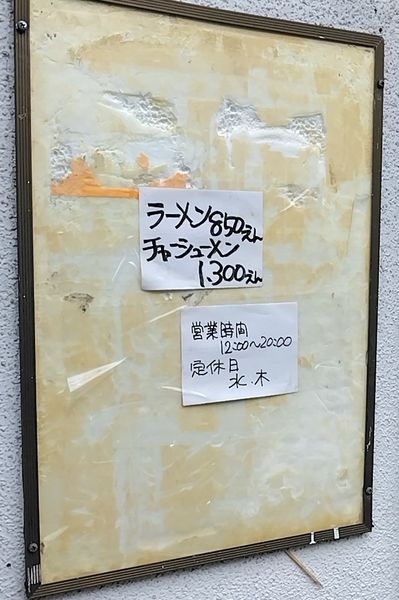 ラーメン850えん
チャーシューメン
1.300えん
営業時間
12:00〜20:00
定休日
水.木